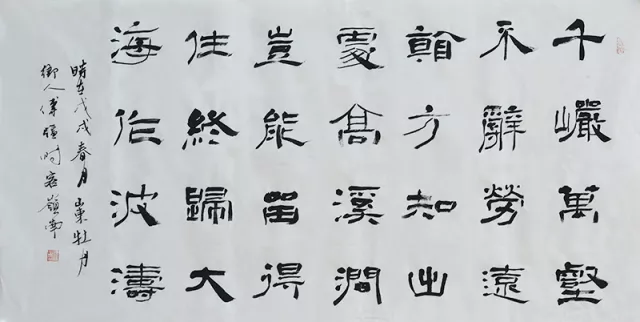 千巖萬壑
不辭勞遠
看方知出
處高溪澗
豈能留得
住終歸大
海作波濤
時在戊戌春月山東牡丹
鄉人傅 時客嶺南